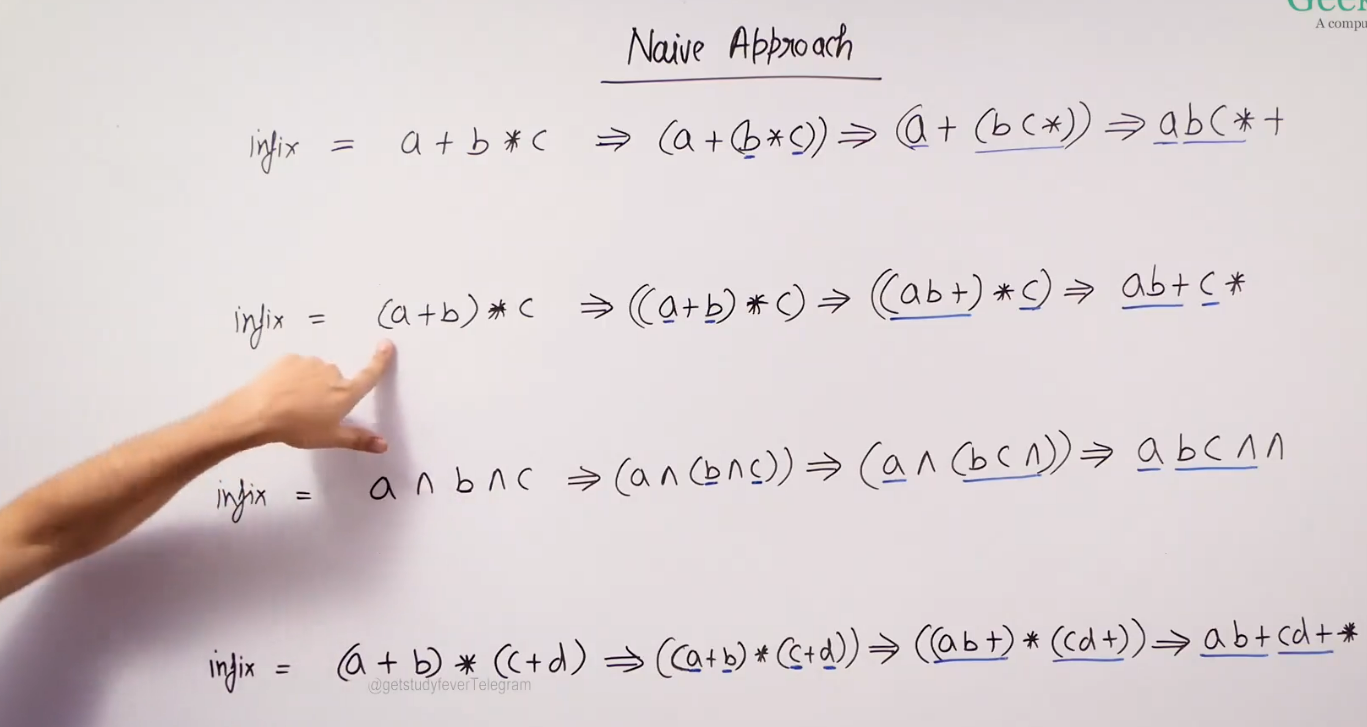 Geek
A compu
Naive Approach
infix = a + b * c ⇒ (a + (b * c)) ⇒ (a + (bc*)) ⇒ abc*+
infix = (a+b) * c ⇒ ((a+b) * c) ⇒ ((ab+) * c) ⇒ ab+c*
infix = a ∧ b ∧ c ⇒ (a ∧ (b ∧ c)) ⇒ (a ∧ (bc∧)) ⇒ abc∧∧
infix = (a + b) * (c+d) ⇒ ((a+b) * (c+d)) ⇒ ((ab+) * (cd+)) ⇒ ab+cd+*
@getstudyfeverTelegram